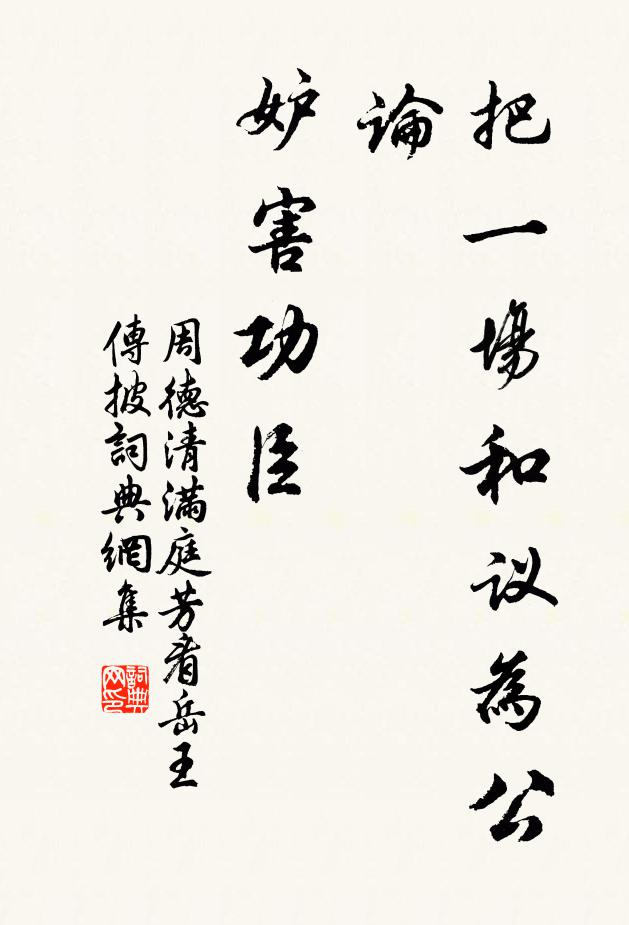 把一場和议為公
論
妒害功臣
周德清滿庭芳看岳王
傳披詞典網集
詞典
网印